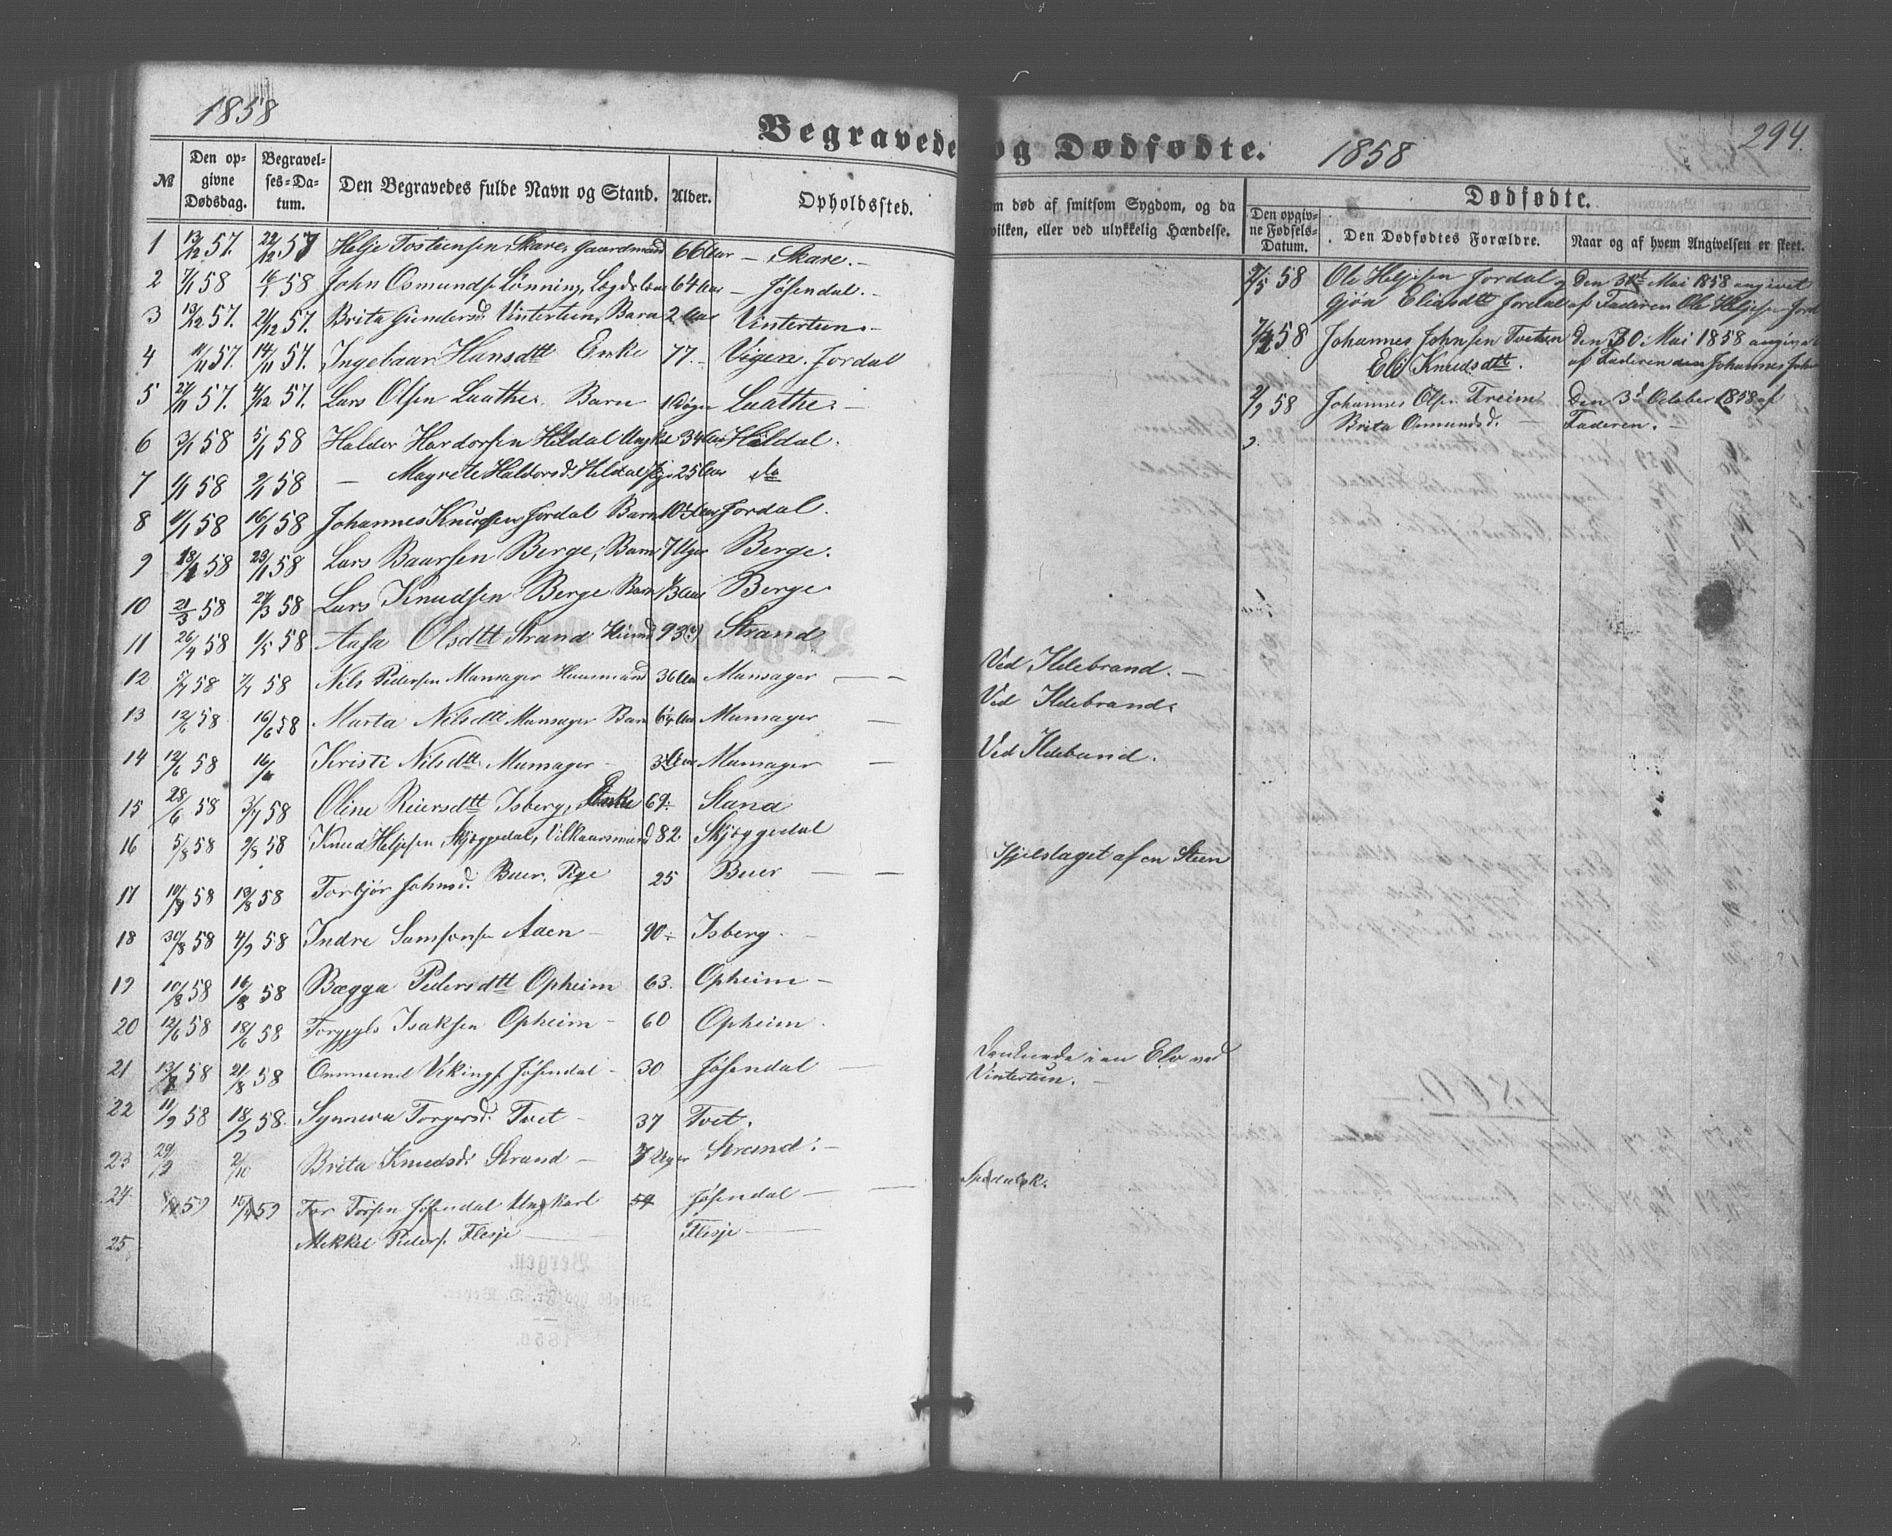 1858
Begravede og Dødfødte.
1858
294.
№
Den opgivne Dødsdag.
Begravelses-Datum.
Den Begravedes fulde Navn og Stand.
Alder.
Opholdssted.
Om død af smitsom Sygdom, og da
hvilken, eller ved ulykkelig Hændelse.
Dødfødte.
Den opgivne Fødsels-Datum.
Den Dødfødtes Forældre.
Naar og af hvem Angivelsen er skeet.
1 13/12 57. 22/12 57 Helje Tostensen Skare, Gaardmand 66 Aar — Skare. —
2 7/1 58 16/1 58 John Osmundsen Lønning, 64 Aar — Jøsendal. —
3 13/12 57. 21/12 57. Brita Gundersd Vintertun, Barn 2 Aar Vintertun. —
4 11/11 57. 14/11 57. Ingebaar Hansdtt Enke 77. Vigen. Jordal
5 27/11 57. 4/12 57. Lars Olsen Laathe. Barn Laathe. —
6 3/1 58 5/1 58 Haldor Hardorsen Hildal 34 Aar Hildal.
7 58 58 — Magrete Haldorsd: Hildal 25 Aar do
8 11/1 58 16/1 58 Johannes Knudsen Jordal Barn Jordal.
9 58 23/ 58 Lars Baarsen Berge, Barn 7 Uger Berge.
10 21/3 58 27/3 58 Lars Knudsen Berge Barn Berge
11 26/4 58 1/5 58 Aasa Olsdtt Strand 93 Strand
12 58 58 Nils Pedersen Mannsager Huusmand 36 Aar Mannsager — —
13 12/6 58. 16/6 58 Marta Nilsdtt Mannsager Barn Mannsager —
14 12/6 58 16/6 Kristi Nilsdtt Mannsager — Mannsager —
15 28/6 58 3/7 58 Oline Reiersdtt Isberg, Enke 69. Stand
16 5/8 58 9/8 58 Knud Heljesen Skjøggedal, Vilkaarsmand 82. Skjøggedal
17 10/8 58 13/8 58 Torbjør Johnsd: Buer. Pige 25 Buer — —
18 30/8 58 4/9 58 Indre Samsonsen Aaen — 90 Isberg.
19 10/8 58 16/8 58 Bægga Pedersdtt Opheim 63. Opheim —
20 12/6 58 18/6 58 Isaksen Opheim — 60 Opheim
21 13/ 58 21/8 58 Osmund Vikings Jøsendal — 30 Jøsendal —
22 11/9 58 18/9 58. Synneva Torgersd. Tvet — 37 Tvet.
23 29/9 2/10 Brita Knudsd: Strand — 7 Uger Strand: —
24 59 59 Tor Torsen Jøsendal Ungkarl Jøsendal —
25 Mikkel Peders. Flesje Flesje —
Ved Ildebrand. —
Ved Ildebrand.
Ved Ildebrand.
Ihjelslaget af en Steen
Druknede i en Elv ved
Vintertun. —
Spedalsk.
2/5 58 Ole Heljesen Jordal og Den 3 Mai 1858 angivet
Gjøa Elin Jordal af Faderen Ole Heljesen
58 Johannes Johnsen Tveten Den 30. Mai 1858 angivet
Eli Knudsdtt. af Faderen den Johannes
2/9 58 Johannes Ols. Freim Den 3d October 1858 af
Brita Osmundsd. — Faderen. —